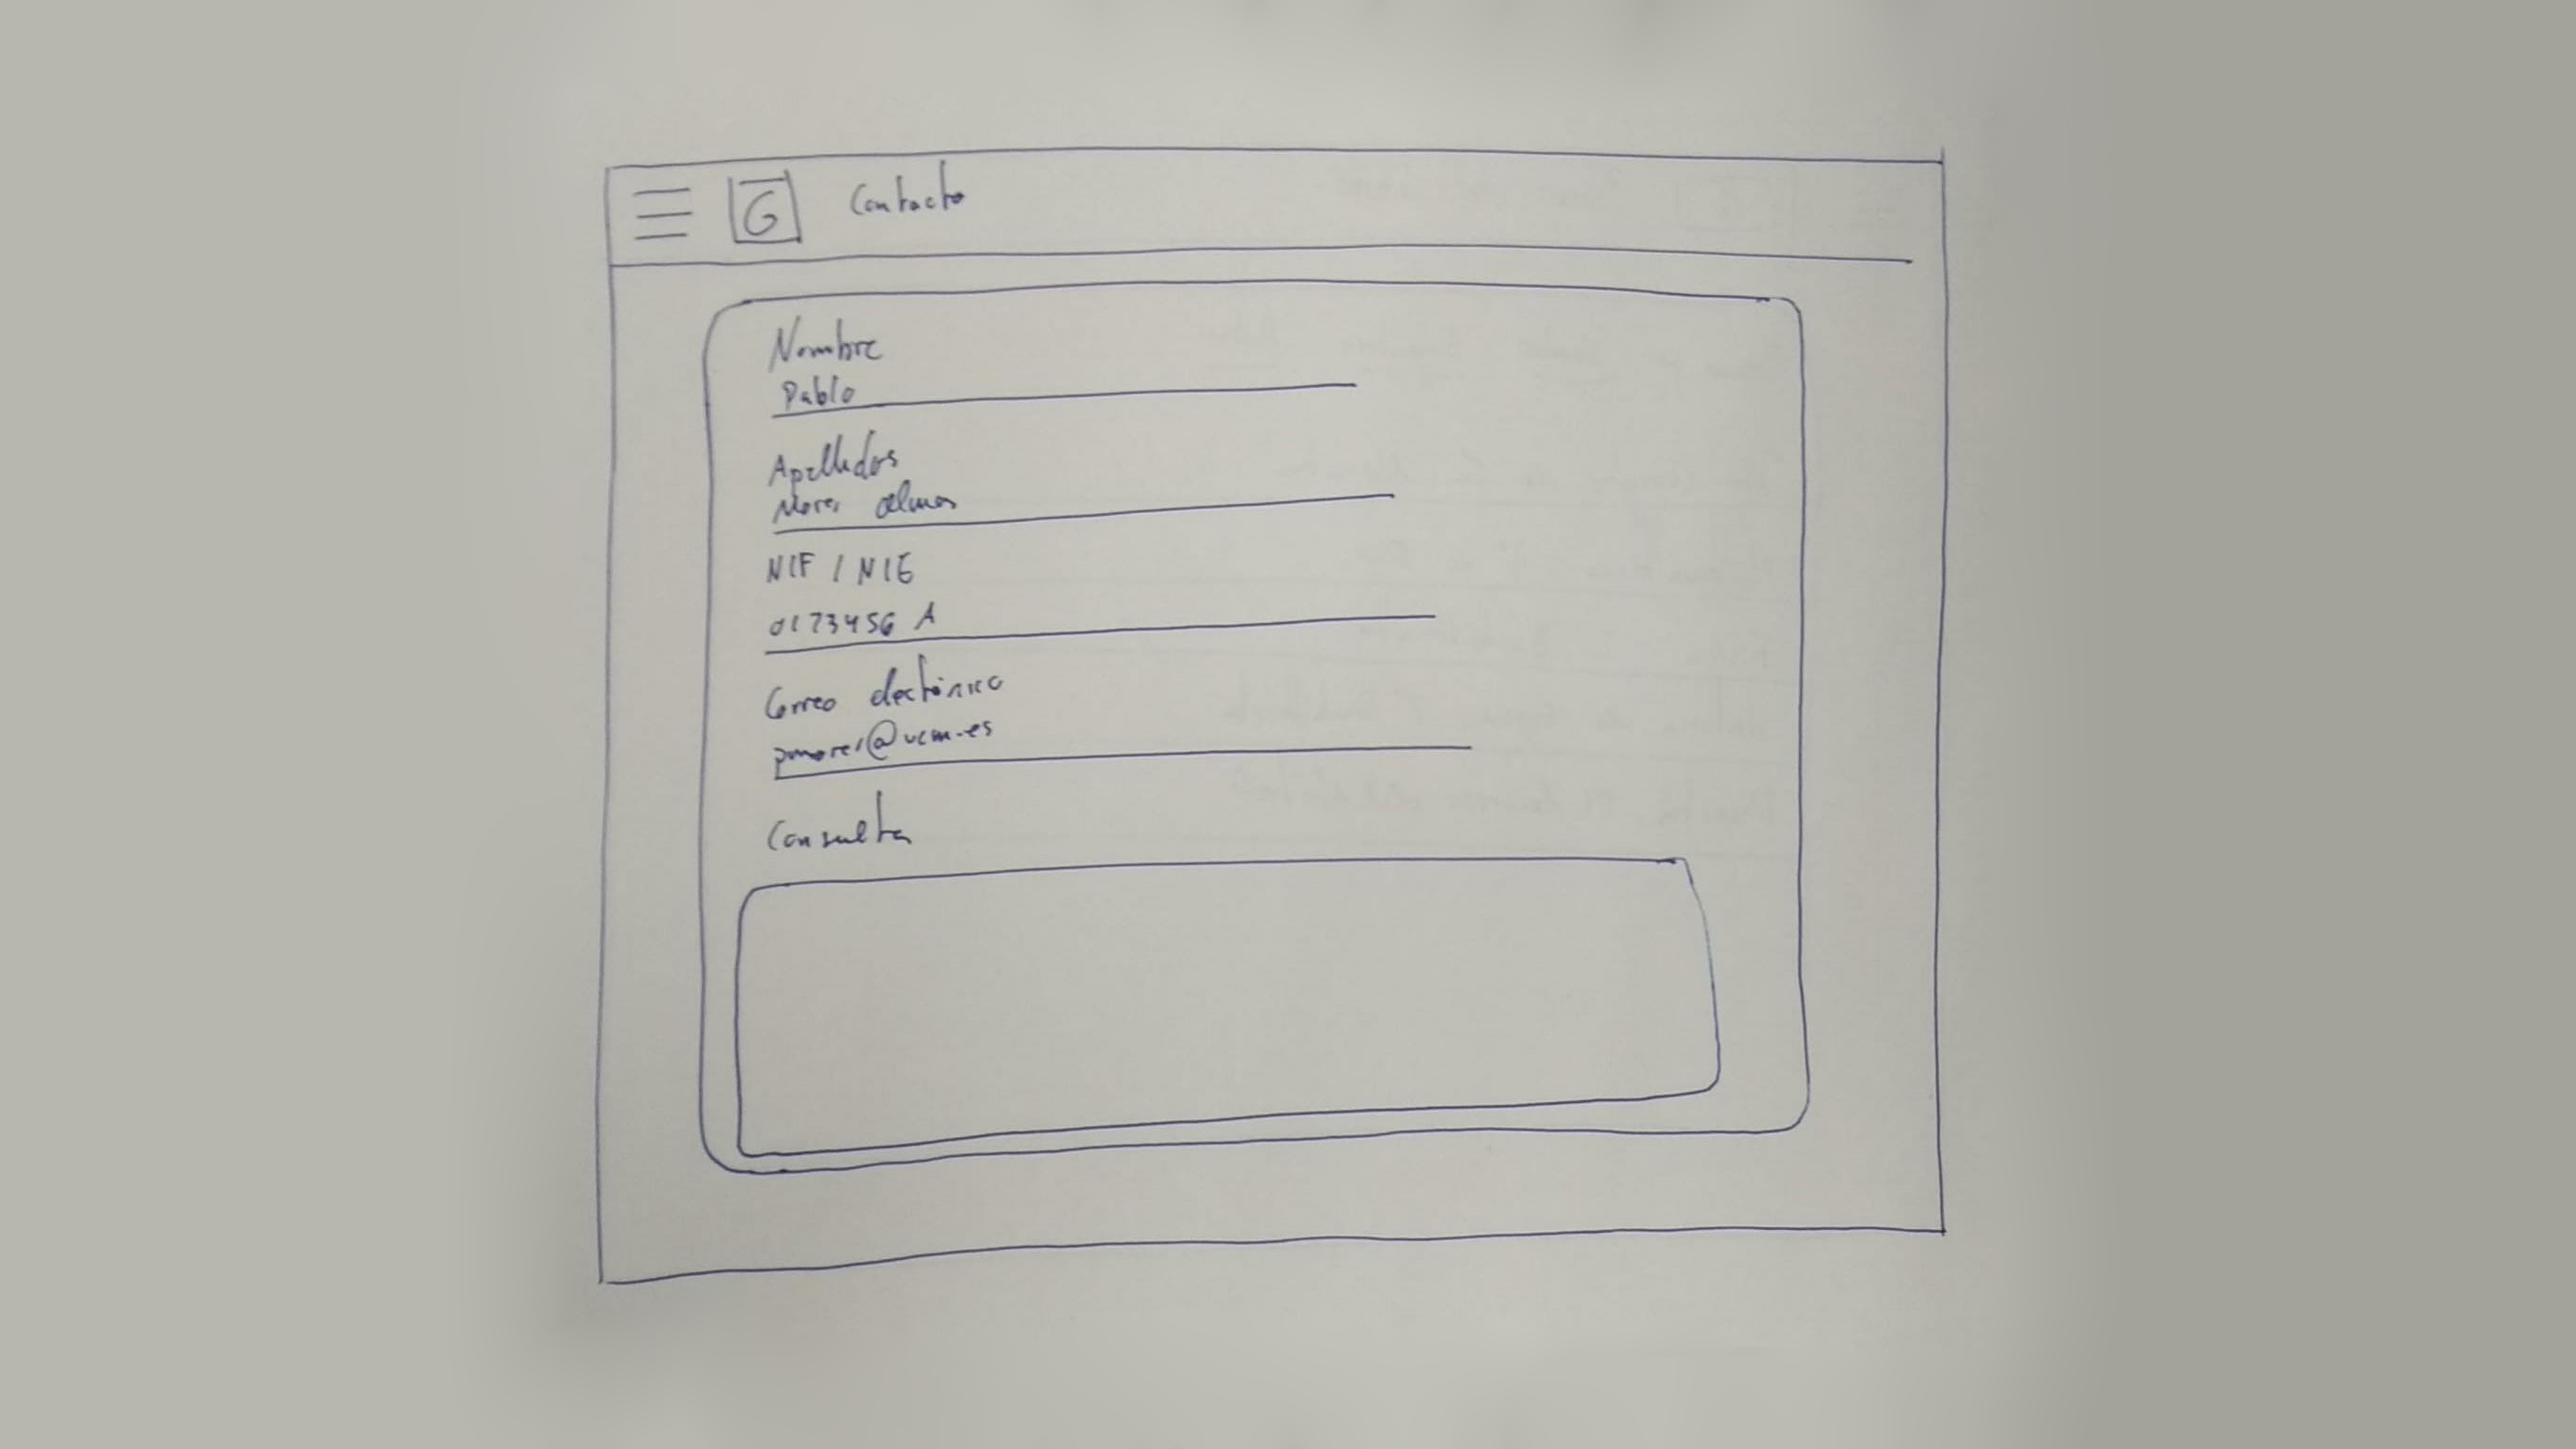 G Contacto
Nombre
Pablo
Apellidos
Olmos
NIF / NIE
0173456 A
Correo electrónico
pmores@ucm.es
Consulta